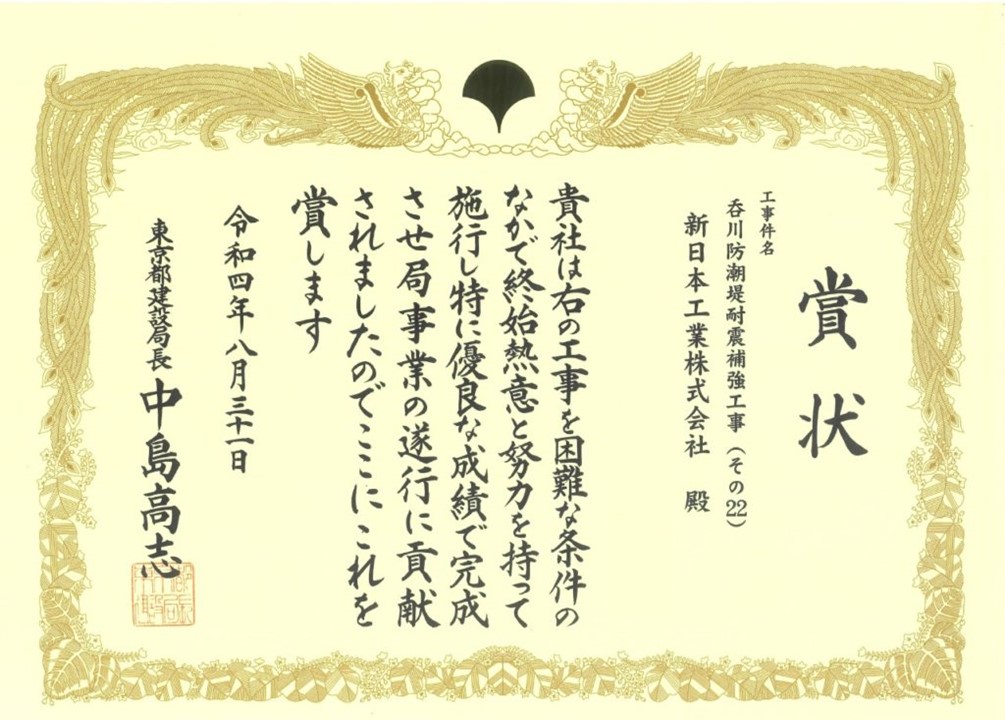 賞状
工事件名
呑川防潮堤耐震補強工事(その22)
新日本工業株式会社 殿
貴社は右の工事を困難な条件の
なかで終始熱意と努力を持って
施行し特に優良な成績で完成
させ局事業の遂行に貢献
されましたのでここにこれを
賞します
令和四年八月三十一日
東京都建設局長 中島高志